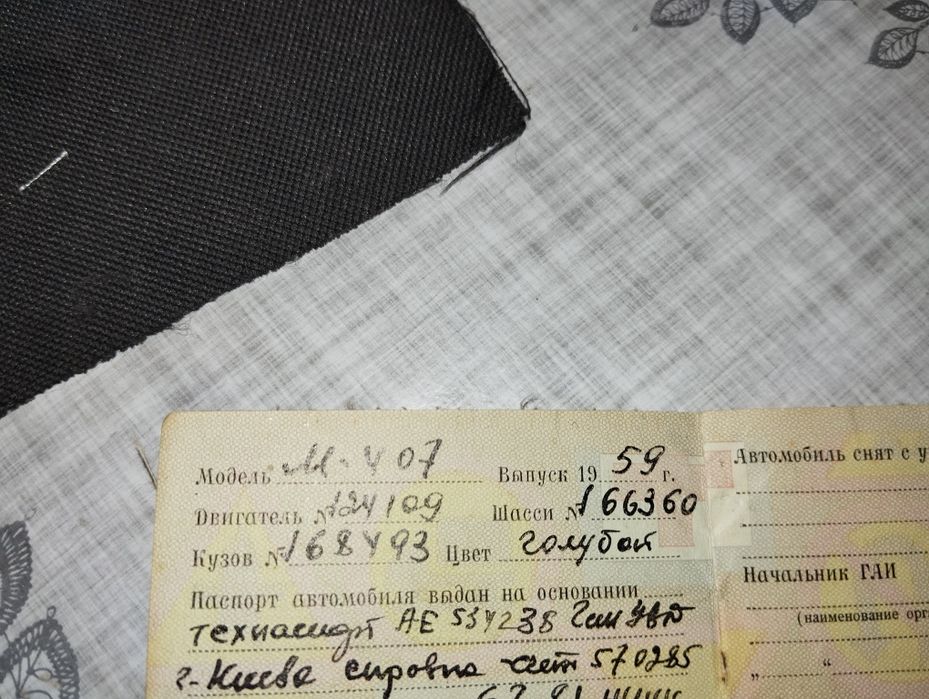 Модель М-407 Выпуск 1959 г.
Двигатель № 124109 Шасси № 166360
Кузов № 168493 Цвет голубой
Паспорт автомобиля выдан на основании
техпаспорт АЕ 534238 Гаи
г. Киева справка счет 570285
Автомобиль снят с у
Начальник ГАИ
(наименование орг
„ “